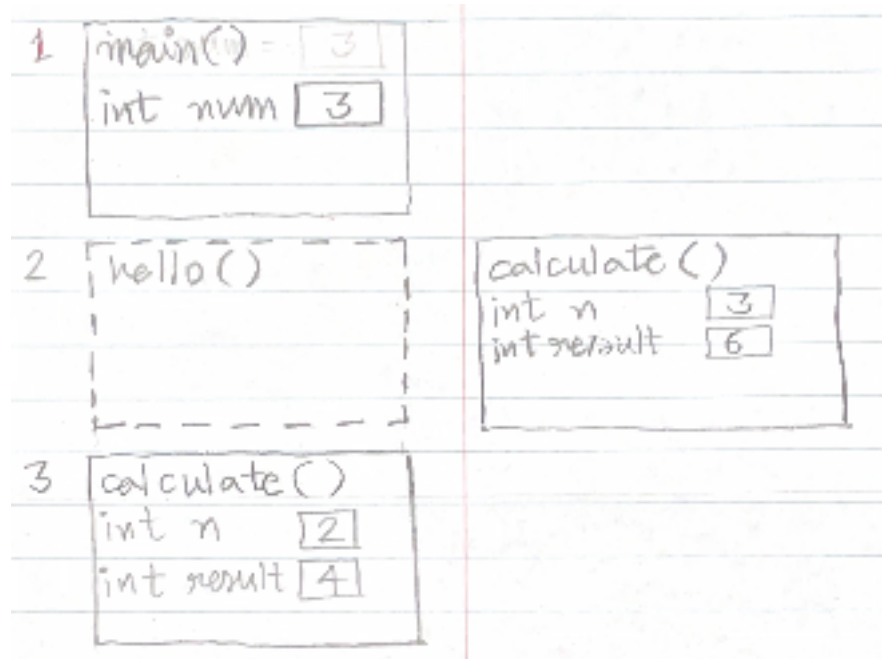 1 main() 3
int num 3
2 hello()
calculate()
int n 3
int result 6
3 calculate()
int n 2
int result 4